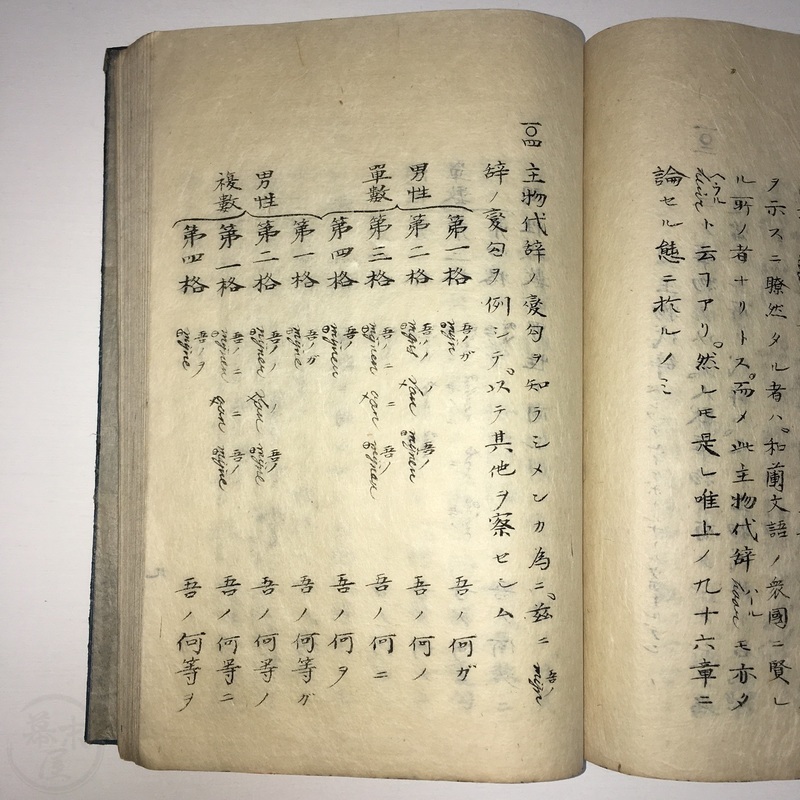 ヲ示スニ瞭然タル者ハ和蘭文語ノ衆國ニ賢レ
ル所ノ者ナリトス而メ此主物代辞 haar ハール モ亦タ
ヘラル ト云フアリ然レモ是レ唯上ノ九十六章ニ
論セル態ニ於ルノミ
一〇四 主物代辞ノ変勾ヲ知ラシメンカ為ニ茲ニ mijn 吾ノ
辞ノ変勾ヲ例シテ以テ其他ヲ察セシム
男性 單數
第一格 mijn 吾ノガ 吾ノ何ガ
第二格 mijns 吾ノノ van mijnen 吾ノノ 吾ノ何ノ
第三格 mijnen 吾ノニ aan mijnen 吾ノニ 吾ノ何ニ
第四格 mijnen 吾ノヲ 吾ノ何ヲ
男性 複數
第一格 mijne 吾ノガ 吾ノ何等ガ
第二格 mijner 吾ノノ van mijne 吾ノノ 吾ノ何等ノ
第一格 mijnen 吾ノニ aan mijne 吾ノニ 吾ノ何等ニ
第四格 mijne 吾ノヲ 吾ノ何等ヲ